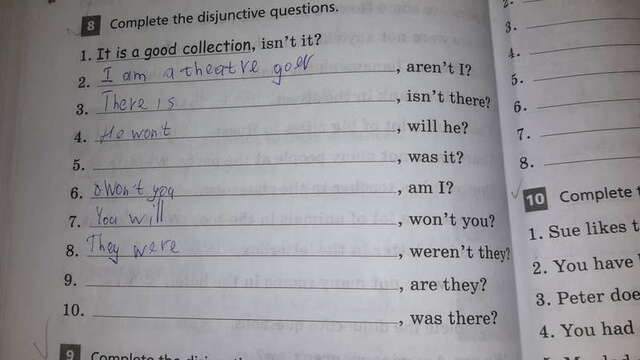 8 Complete the disjunctive questions.
1. It is a good collection, isn't it?
2. I am a theatre goer, aren't I?
3. There is, isn't there?
4. He won't, will he?
5. , was it?
6. won't you, am I?
7. You will, won't you?
8. They were, weren't they?
9. , are they?
10. , was there?
9 Complete the
3.
4.
5.
6.
7.
8.
10 Complete t
1. Sue likes t
2. You have
3. Peter doe
4. You had